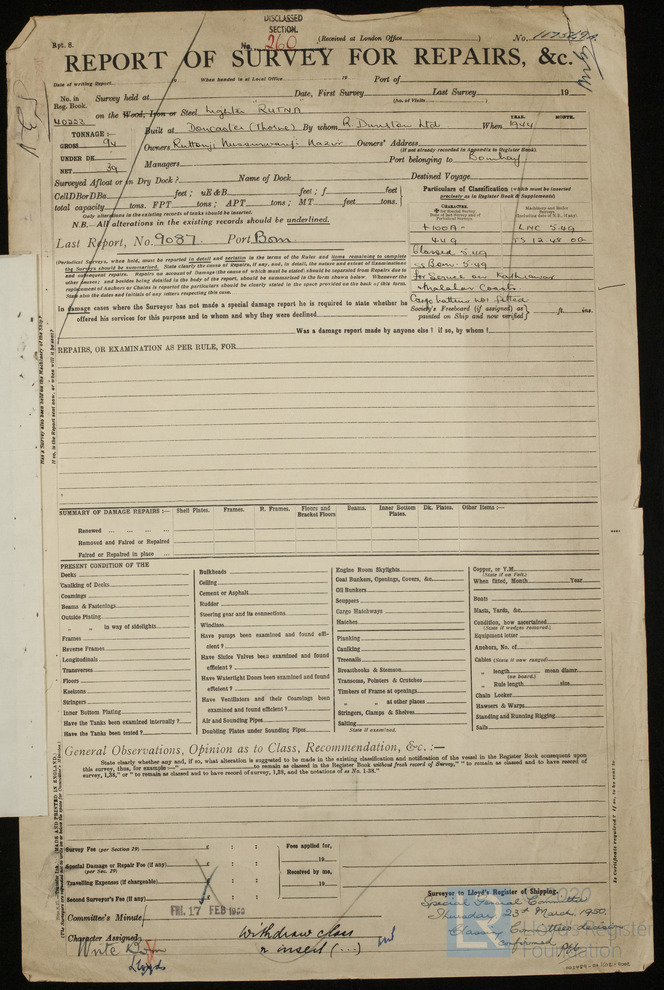 DISCLASSED
SECTION.
Rpt. 8.
No. 260
(Received at London Office
No.
REPORT OF SURVEY FOR REPAIRS, &c.
Date of writing Report
When handed in at Local Office
19
Port of
No. in Reg. Book.
Survey held at
Date, First Survey
Last Survey
19
(No. of Visits
40223
on the Wood, Iron or Steel Lighter RUTNA
TONNAGE:—
Built at Doncaster (Thorne) By whom R. Dunston Ltd When 1944
YEAR. MONTH.
GROSS 94
Owners Ruttonji Nusserwanji Nazir Owners' Address
(If not already recorded in Appendix to Register Book).
UNDER DK
Managers
Port belonging to Bombay
NET 39
Surveyed Afloat or in Dry Dock?
Name of Dock
Destined Voyage
CellDBorDBa feet; uE&B feet; f feet
total capacity tons. FPT tons; APT tons; MT feet tons.
Only alterations in the existing records of tanks should be inserted.
N.B.—All alterations in the existing records should be underlined.
Last Report, No. 9087. Port Bom
Particulars of Classification (which must be inserted
precisely as in Register Book & Supplements)
CHARACTER.
Machinery and Boiler Surveys
+100A-
LMC 5.49
449
TS 12.48 OG
Classed 5.49
Bom-5.49
for Service on Kathiawar
& Malabar Coasts.
Cargo battens not fitted
Society's Freeboard (if assigned) as
painted on Ship and now verified
ft. ins.
(Periodical Surveys, when held, must be reported in detail and seriatim in the terms of the Rules and items remaining to complete
the Surveys should be summarised. State clearly the cause of Repairs, if any, and, in detail, the nature and extent of Examinations
and subsequent repairs. Repairs on account of Damage (the cause of which must be stated) should be separated from Repairs due to
other causes; and besides being detailed in the body of the report, should be summarised in the form shown below. Whenever the
replacement of Anchors or Chains is reported the particulars should be clearly stated in the space provided on the back of this form.
State also the dates and initials of any letters respecting this case.
In damage cases where the Surveyor has not made a special damage report he is required to state whether he
offered his services for this purpose and to whom and why they were declined
Was a damage report made by anyone else? if so, by whom?
REPAIRS, OR EXAMINATION AS PER RULE, FOR
SUMMARY OF DAMAGE REPAIRS:—
Shell Plates. Frames. R. Frames. Floors and Bracket Floors Beams. Inner Bottom Plates. Dk. Plates. Other Items:—
Renewed
Removed and Faired or Repaired
Faired or Repaired in place
PRESENT CONDITION OF THE
Decks
Caulking of Decks
Coamings
Beams & Fastenings
Outside Plating
" " in way of sidelights
Frames
Reverse Frames
Longitudinals
Transverses
Floors
Keelsons
Stringers
Inner Bottom Plating
Have the Tanks been examined internally?
Have the Tanks been tested?
Bulkheads
Ceiling
Cement or Asphalt
Rudder
Steering gear and its connections
Windlass
Have pumps been examined and found effi-
cient?
Have Sluice Valves been examined and found
efficient?
Have Watertight Doors been examined and found
efficient?
Have Ventilators and their Coamings been
examined and found efficient?
Air and Sounding Pipes
Doubling Plates under Sounding Pipes
Engine Room Skylights
Coal Bunkers, Openings, Covers, &c.
Oil Bunkers
Scuppers
Cargo Hatchways
Hatches
Planking
Caulking
Treenails
Breasthooks & Stemson
Transoms, Pointers & Crutches
Timbers of Frame at openings
" " at other places
Stringers, Clamps & Shelves
Salting
State if examined.
Copper, or Y.M.
(State if on Felt.)
When fitted, Month Year
Boats
Masts, Yards, &c.
Condition, how ascertained
(State if wedges removed.)
Equipment letter
Anchors, No. of
Cables (State if now ranged)
" length mean diamr.
(on board.)
" Rule length size
Chain Locker
Hawsers & Warps
Standing and Running Rigging
Sails
General Observations, Opinion as to Class, Recommendation, &c.:—
State clearly whether any, and if so, what alteration is suggested to be made in the existing classification and notification of the vessel in the Register Book consequent upon
this survey, thus, for example:—" to remain as classed in the Register Book without fresh record of Survey," " to remain as classed and to have record of
survey, 1,38," or " to remain as classed and to have record of survey, 1,38, and the notations of ss No. 1-38."
Survey Fee (per Section 29) £ : :
Special Damage or Repair Fee (if any) £ : :
(per Sec. 29)
Travelling Expenses (if chargeable) £ : :
Second Surveyor's Fee (if any) £ : :
Fees applied for,
19
Received by me,
19
Surveyor to Lloyd's Register of Shipping.
Committee's Minute
FRI. 17 FEB 1950
Special General Committee
Thursday 23rd March, 1950.
Classing Committee's decision
confirmed
Character Assigned
withdraw class
& insert (...)
Write Bom
Lloyds
© 2020
Lloyd's Register
Foundation